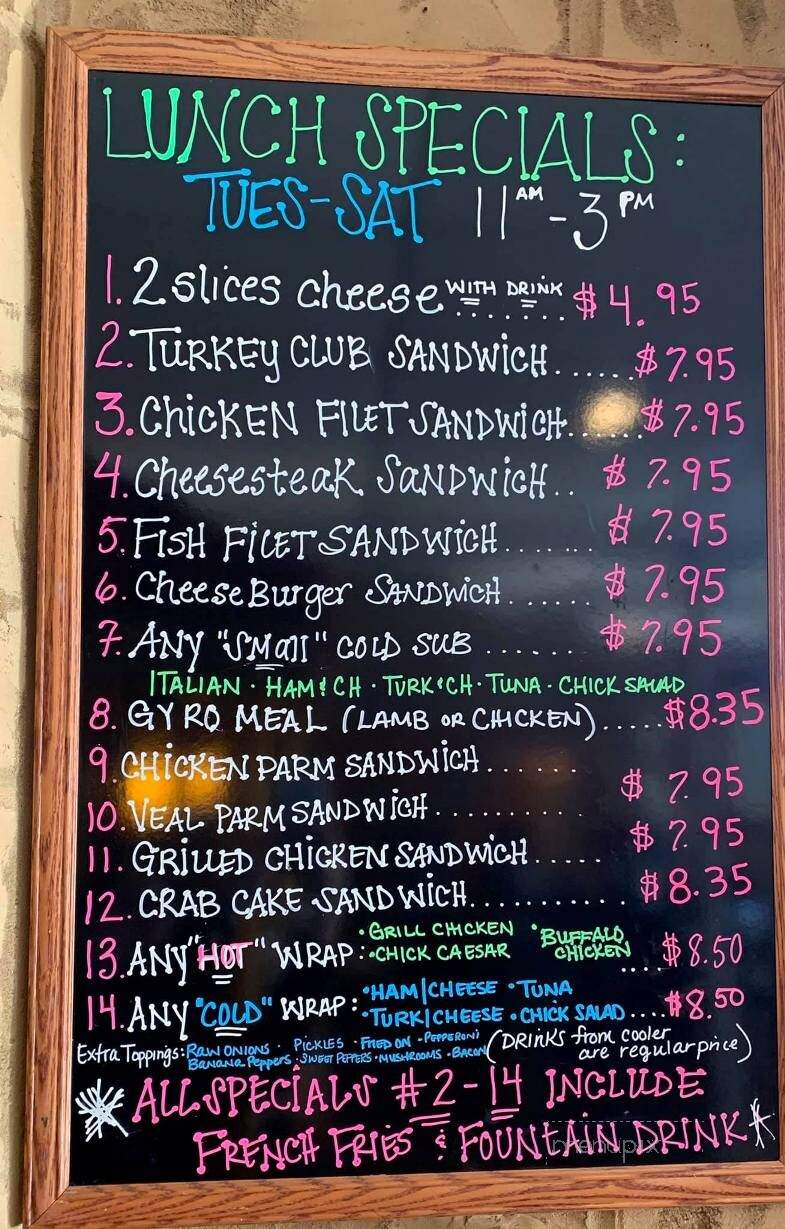 LUNCH SPECIALS:
TUES-SAT 11AM-3PM
1. 2 slices cheese WITH DRINK ....... $4.95
2. TURKEY CLUB SANDWICH...... $7.95
3. CHICKEN FILET SANDWICH....... $7.95
4. Cheesesteak SANDWICH.. $7.95
5. FISH FILET SANDWICH....... $7.95
6. Cheese Burger SANDWICH...... $7.95
7. ANY "SMall" COLD SUB ....... $7.95
ITALIAN · HAM & CH · TURK & CH · TUNA · CHICK SALAD
8. GYRO MEAL (LAMB OR CHICKEN)..... $8.35
9. CHICKEN PARM SANDWICH.......
$7.95
10. VEAL PARM SANDWICH..........
$7.95
11. GRILLED CHICKEN SANDWICH.....
12. CRAB CAKE SANDWICH........... $8.35
13. ANY "HOT" WRAP: •GRILL CHICKEN •BUFFALO CHICKEN
•CHICK CAESAR .... $8.50
14. ANY "COLD" WRAP: •HAM|CHEESE •TUNA
•TURK|CHEESE •CHICK SALAD.... $8.50
Extra Toppings: RAW ONIONS · PICKLES · FRIED ON · PEPPERONI
Banana Peppers · SWEET PEPPERS · MUSHROOMS · BACON
(DRINKS from cooler
are regular price)
* ALL SPECIALS #2-14 INCLUDE
FRENCH FRIES & FOUNTAIN DRINK *
menupix